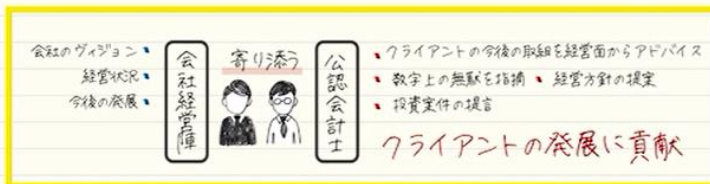 会社のヴィジョン
経営状況
今後の発展
会社経営陣
寄り添う
公認会計士
クライアントの今後の取組を経営面からアドバイス
数字上の無駄を指摘 経営方針の提案
投資案件の提言
クライアントの発展に貢献